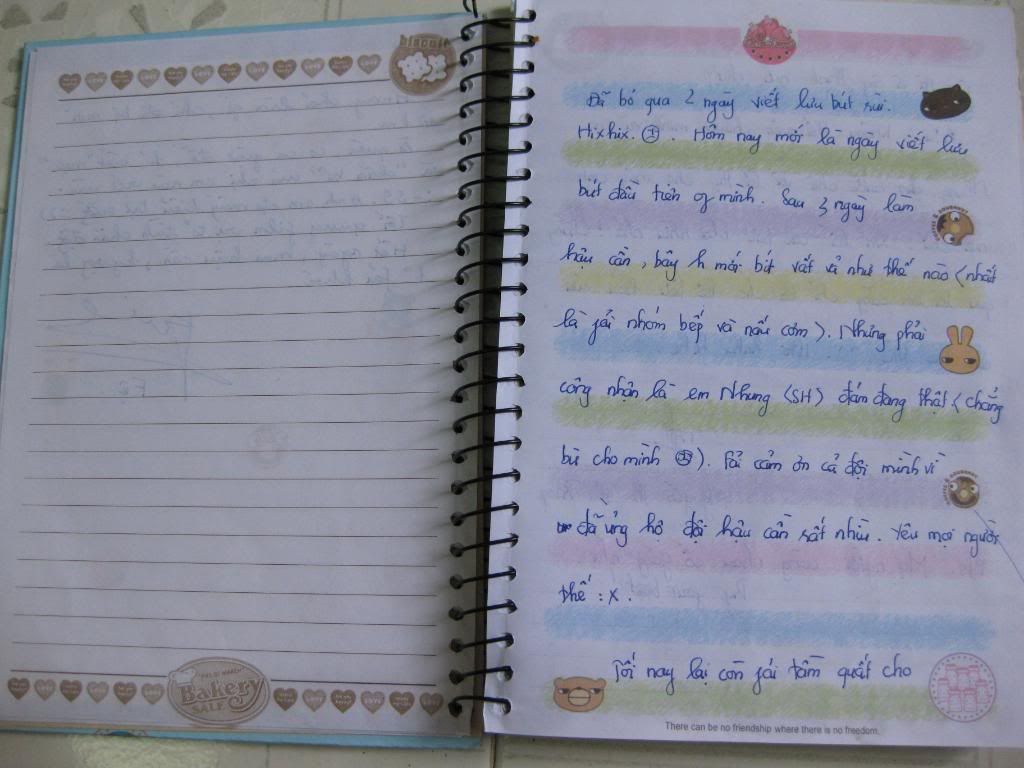 biscuit
Bakery
SALE
Đã bỏ qua 2 ngày viết lưu bút rùi.
Hixhix. Hôm nay mới là ngày viết lưu
bút đầu tiên of mình. Sau 3 ngày làm
hậu cần, bây h mới bít vất vả như thế nào (nhất
là jải nhóm bếp và nấu cơm). Nhưng phải
công nhận là em Nhung (SH) đảm đang thật (chẳng
bù cho mình). Fải cảm ơn cả đội mình vì
đã ủng hộ đội hậu cần rất nhìu. Yêu mọi người
thế :x.
Tối nay lại còn jải tẩm quất cho
There can be no friendship where there is no freedom.